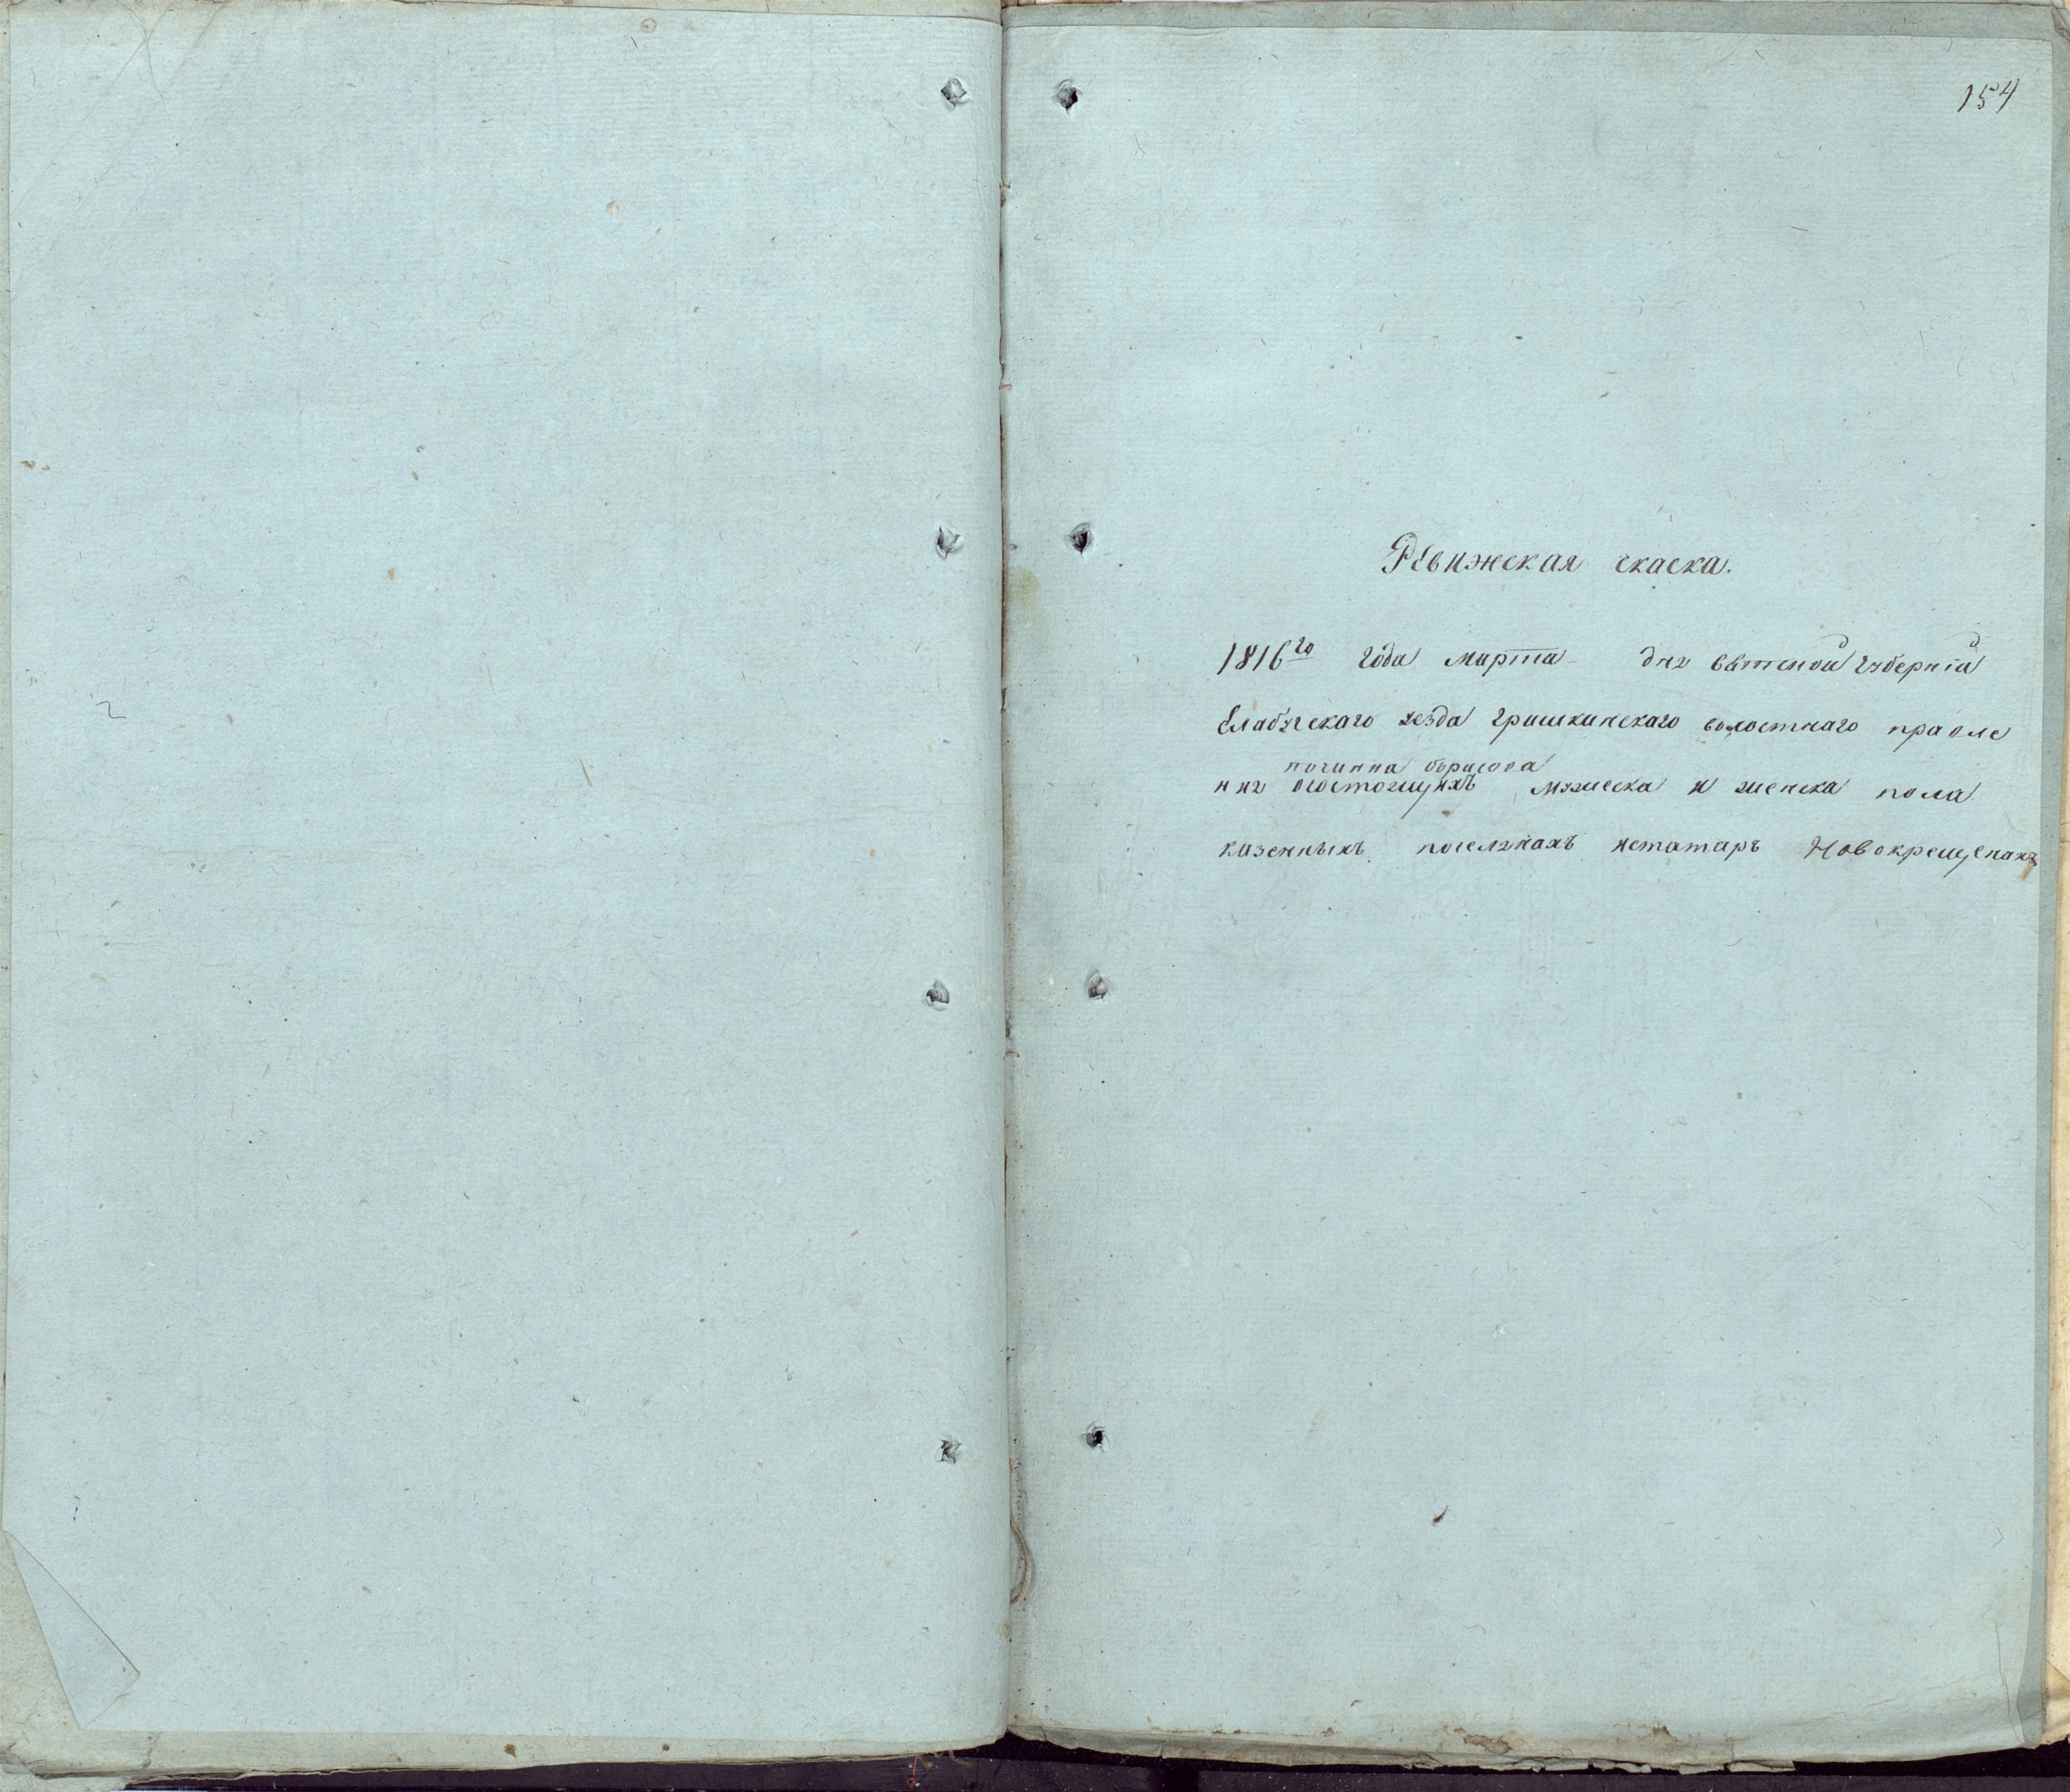 154
Ревижская скаска.
1816го года марта дня вятской губернїи
Елабугского уезда гришкинского волостного правле
починка борисова
ния осостоящихъ мужеска и женска пола
казенныхъ поселянахъ истатаръ Новокрещенахъ